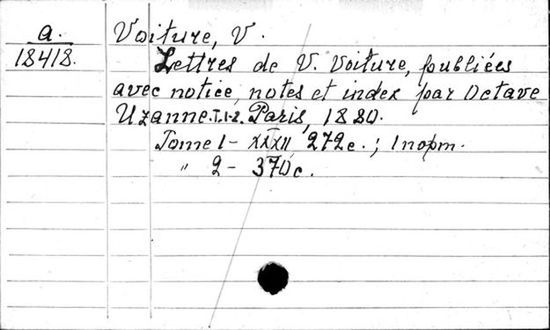 a.
18418.
Voiture, V.
Lettres de V. Voiture, publiées
avec notice, notes et index par Octave
Uzanne. T.1-2. Paris, 1880.
Tome 1 - XXXII, 272c.; 1 порт.
" 2 - 370c.